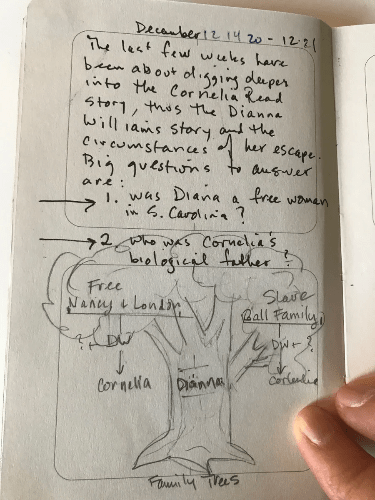 December 12.14.20 - 12.21
The last few weeks have
been about digging deeper
into the Cornelia Read
story, thus the Dianna
Williams story and the
circumstances of her escape.
Big questions to answer
are:
1. was Diana a free woman
in S. Carolina?
2. who was Cornelia's
biological father?
Free
Nancy & London
Slave
Ball Family
? + DW
DW + ?
Cornelia
Dianna
Cornelia
Family Trees